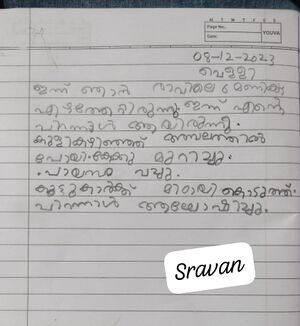 M T W T F S S
Page No.:
Date:
YOUVA
08-12-2023
വെള്ളി
ഇന്ന് ഞാൻ രാവിലെ 6 മണിക്കു
എഴുന്നേറ്റിരുന്നു ഇന്ന് എന്റെ
പിറന്നാൾ ആയിരുന്നു.
കുളികഴിഞ്ഞ് അമ്പലത്തിൽ
പോയി. കേക്കു മുറിച്ചു.
പായസം വച്ചു.
കൂട്ടുകാർക്ക് മിഠായി കൊടുത്ത്.
പിറന്നാൾ ആഘോഷിച്ചു.
Sravan